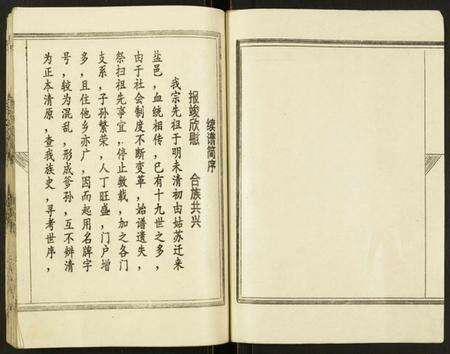 续谱简序
报竣欣慰　合族共兴
我宗先祖于明末清初由姑苏迁来
盐邑，血统相传，已有十九世之多，
由于社会制度不断变革，始谱遗失，
祭扫祖先事宜，停止数载，加之各门
支系，子孙繁荣，人丁旺盛，门户增
多，且住他乡亦广，因而起用名牌字
号，较为混乱，形成爹孙，互不辨清
为正本清原，查我族史，寻考世序，